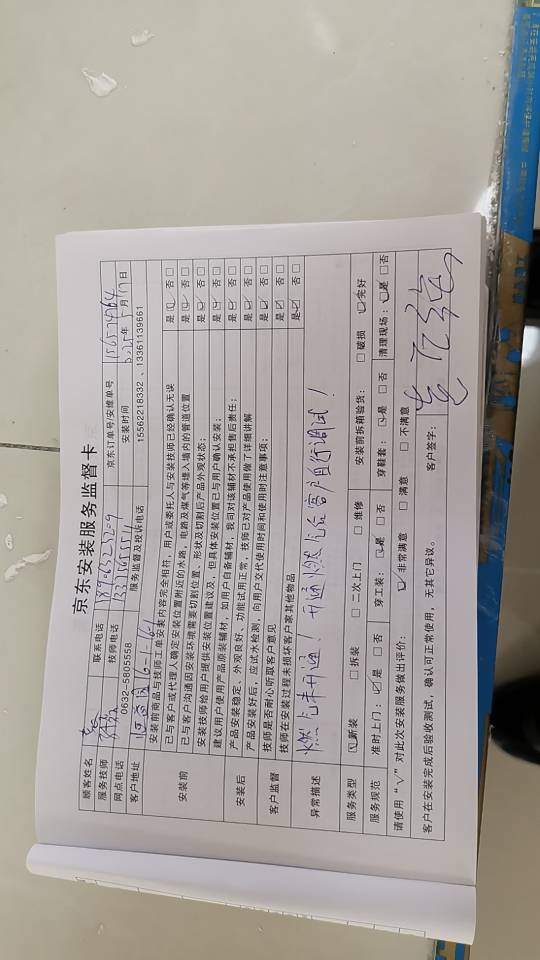 京东安装服务监督卡
顾客姓名 联系电话 京东订单号/安维单号
服务技师 技师电话 安装时间 2025年5月17日
网点电话 0632-5805558 服务监督及投诉电话 15562218332、13361139661
客户地址
安装前 安装前商品与技师上单安装内容完全相符，用户或委托人与安装技师已经确认无误 是☑ 否□
已与客户或代理人确定安装位置附近的水路，电路及煤气等埋入墙内的管道位置 是☑ 否□
已与客户沟通因安装环境需要切割位置、形状及切割后产品外观状态； 是☑ 否□
安装技师给用户提供安装位置建议及，但具体安装位置已与用户确认安装； 是☑ 否□
建议用户使用产品原装辅材，如用户自备辅材，我司对该辅材不承担售后责任； 是☑ 否□
安装后 产品安装稳定、外观良好、功能试用正常，技师已对产品使用做了详细讲解 是☑ 否□
产品安装好后，应试水检测，向用户交代使用时间和使用时注意事项； 是☑ 否□
客户监督 技师是否耐心听取客户意见 是☑ 否□
技师在安装过程未损坏客户家其他物品 是☑ 否□
异常描述 燃气未开通！开通燃气后客户自行调试！
服务类型 ☑新装 □拆装 □二次上门 □维修 安装前拆箱验货： □破损 ☑完好
服务规范 准时上门：☑是 □否 穿工装：☑是 □否 穿鞋套：☑是 □否 清理现场：☑是 □否
请使用“√”对此次安装服务做出评价： ☑非常满意 □满意 □不满意
客户在安装完成后验收测试，确认可正常使用，无其它异议。 客户签字：